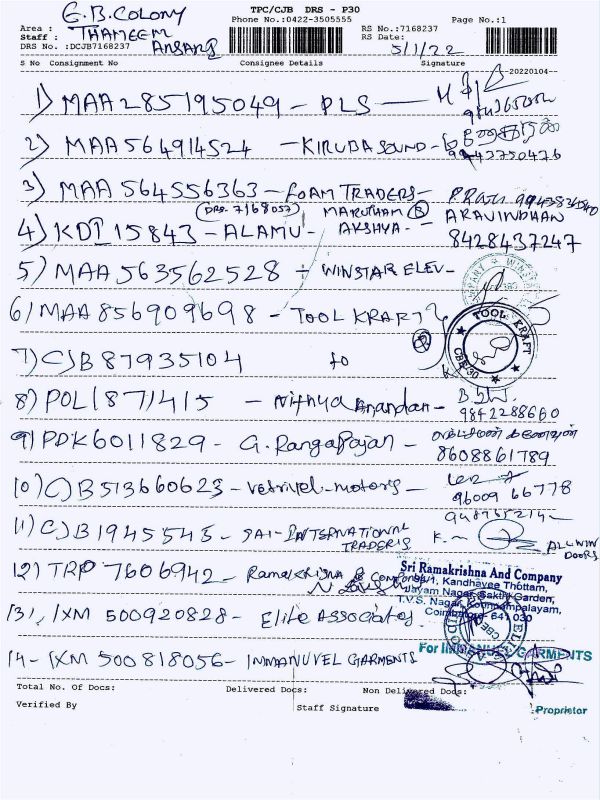 G.B. COLONY
TPC/CJB DRS - P30
Area :
Phone No.:0422-3505555
RS No.:7168237
Page No.:1
Staff : THAMEEM
RS Date: 5/1/22
DRS No. :DCJB7168237
ANSARI
S No Consignment No Consignee Details Signature
20220104
1) MAA 285195049 - PLS
2) MAA 564914524 - KIRUBA SOUND -
9443750476
3) MAA 564556363 - FOAM TRADERS -
(DRS- 7168057) MARUTHAM
4) KDI 15843 - ALAMU - AKSHYA - ARAVINDHAN
8428437247
5) MAA 563562528 - WINSTAR ELEV -
6) MAA 856909698 - TOOL KRAFT
TOOL KRAFT
CBE-30
7) CJB 87935104 to
8) POL 1871415 - Nithya Anandan - 9842288660
9) PDK 6011829 - G. Rangarajan - 8608861789
10) CJB 513660623 - vetrivel motors - 96009 66778
11) CJB 1945545 - SAI-INTERNATIONAL
TRADERS
ALLWIN
DOORS
12) TRP 7606942 - Ramakrishna & Company
Sri Ramakrishna And Company
Kandhavee Thottam,
Jayam Nagar, Sakthi Garden,
T.V.S. Nagar, Koundampalayam,
Coimbatore- 641 030
13) IXM 500920828 - Elite Associates
14 - IXM 500818056 - IMMANUVEL GARMENTS
For IMMANUEL GARMENTS
Total No. Of Docs: Delivered Docs: Non Delivered Docs:
Verified By Staff Signature
Proprietor